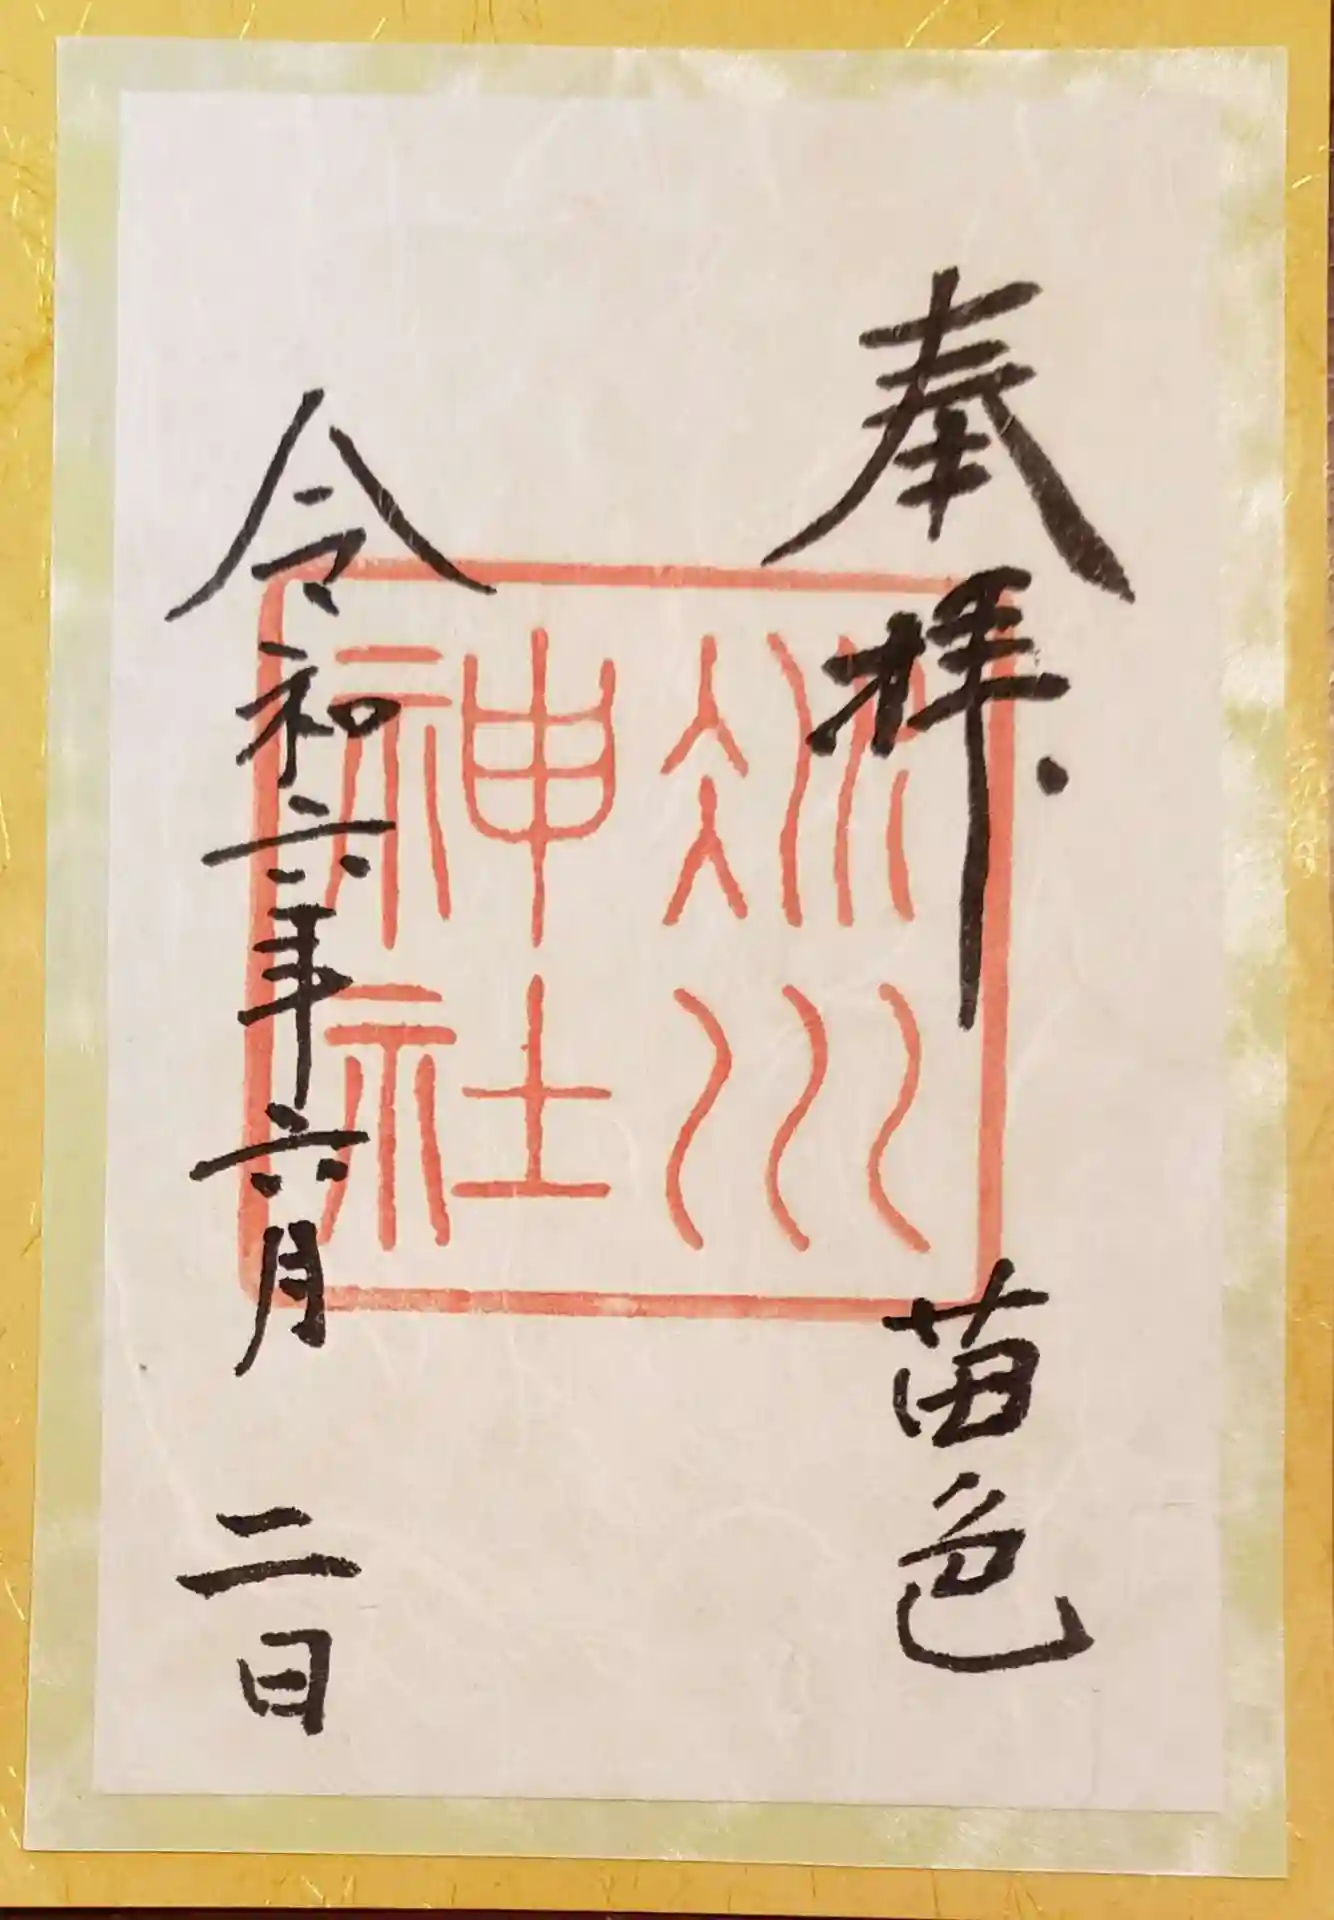 奉拝
苗色
冰川
神社
令和六年六月二日